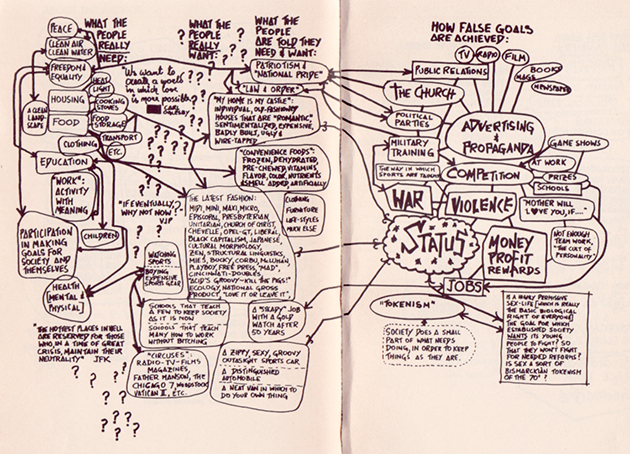 WHAT THE
PEOPLE
REALLY
NEED:
PEACE
CLEAN AIR
CLEAN WATER
FREEDOM &
EQUALITY
HEAT
LIGHT
HOUSING
COOKING
STOVES
A CLEAN
LAND-
SCAPE
FOOD
FOOD
STORAGE
CLOTHING
TRANSPORT
ETC.
EDUCATION
"WORK":
ACTIVITY
WITH
MEANING
PARTICIPATION
IN MAKING
GOALS FOR
SOCIETY AND
THEMSELVES
CHILDREN
HEALTH
(MENTAL &
PHYSICAL)
"THE HOTTEST PLACES IN HELL
ARE RESERVED FOR THOSE
WHO, IN A TIME OF GREAT
CRISIS, MAINTAIN THEIR
NEUTRALITY" JFK
WHAT THE
PEOPLE
REALLY
WANT:
"We want to
create a world
in which love
is more possible"
CARL
OGLESBY
"IF EVENTUALLY,
WHY NOT NOW?"
WATCHING
SPORTS
BUYING
EXPENSIVE
SPORTS GEAR
WHAT THE
PEOPLE
ARE TOLD THEY
NEED & WANT:
PATRIOTISM &
"NATIONAL PRIDE"
"LAW & ORDER"
"MY HOME IS MY CASTLE":
INDIVIDUAL, OLD-FASHIONY
HOUSES THAT ARE "ROMANTIC"
SENTIMENTALIZED, EXPENSIVE,
BADLY BUILT, UGLY &
WIRE-TAPPED
"CONVENIENCE FOODS":
FROZEN, DEHYDRATED,
PRE-CHEWED, VITAMINS,
FLAVOR, COLOR, NUTRIENTS
& SMELL ADDED ARTIFICIALLY
THE LATEST FASHION:
MIDI, MINI, MAXI, MICRO,
EPISCOPAL, PRESBYTERIAN,
UNITARIAN, CHURCH OF CHRIST,
CHEVELLE, OPEL-GT, LIBERAL,
BLACK CAPITALISM, JAPANESE,
CULTURAL MORPHOLOGY,
ZEN, STRUCTURAL LINGUISTICS,
MIES, BUCKY, CORBU, McLUHAN,
PLAYBOY, FREE PRESS, "MAD",
CINCINNATI-DOUBLES,
"ACID'S GROOVY—KILL THE PIGS!"
ECOLOGY, NATIONAL GROSS
PRODUCT, "LOVE IT OR LEAVE IT",
CLOTHING
FURNITURE
LIFE-STYLES
MUCH ELSE
SCHOOLS THAT TEACH
A FEW TO KEEP SOCIETY
AS IT IS NOW
SCHOOLS THAT TEACH
MANY HOW TO WORK
WITHOUT BITCHING
A "STEADY" JOB
WITH A GOLD
WATCH AFTER
50 YEARS
"CIRCUSES":
RADIO-TV-FILMS
MAGAZINES,
FATHER MANSON, THE
CHICAGO 7, WOODSTOCK
VATICAN II, ETC.
A ZIPPY, SEXY, GROOVY
OUTASIGHT SPORTS CAR
A DISTINGUISHED
AUTOMOBILE
A NEAT VAN IN WHICH TO
DO YOUR OWN THING
HOW FALSE GOALS
ARE ACHIEVED:
TV
RADIO
FILM
BOOKS
MAGS
NEWSPAPERS
PUBLIC RELATIONS
THE CHURCH
POLITICAL
PARTIES
MILITARY
TRAINING
THE WAY IN WHICH
SPORTS ARE TAUGHT
ADVERTISING
&
PROPAGANDA
COMPETITION
GAME SHOWS
AT WORK
PRIZES
SCHOOLS
WAR
VIOLENCE
"MOTHER WILL
LOVE YOU, IF...."
STATUS
MONEY
PROFIT
REWARDS
NOT ENOUGH
TEAM WORK,
"THE CULT OF
PERSONALITY"
JOBS
"TOKENISM"
SOCIETY DOES A SMALL
PART OF WHAT NEEDS
DOING, IN ORDER TO KEEP
THINGS AS THEY ARE.
IS A HIGHLY PERMISSIVE
SEX-LIFE (WHICH IS REALLY
THE BASIC BIOLOGICAL
RIGHT OF EVERYONE)
THE GOAL FOR WHICH
ESTABLISHED SOCIETY
WANTS ITS YOUNG
PEOPLE TO FIGHT? SO
THAT THEY WON'T FIGHT
FOR NEEDED REFORMS?
IS SEX A SORT OF
BISMARCKIAN TOKENISM
OF THE 70s?